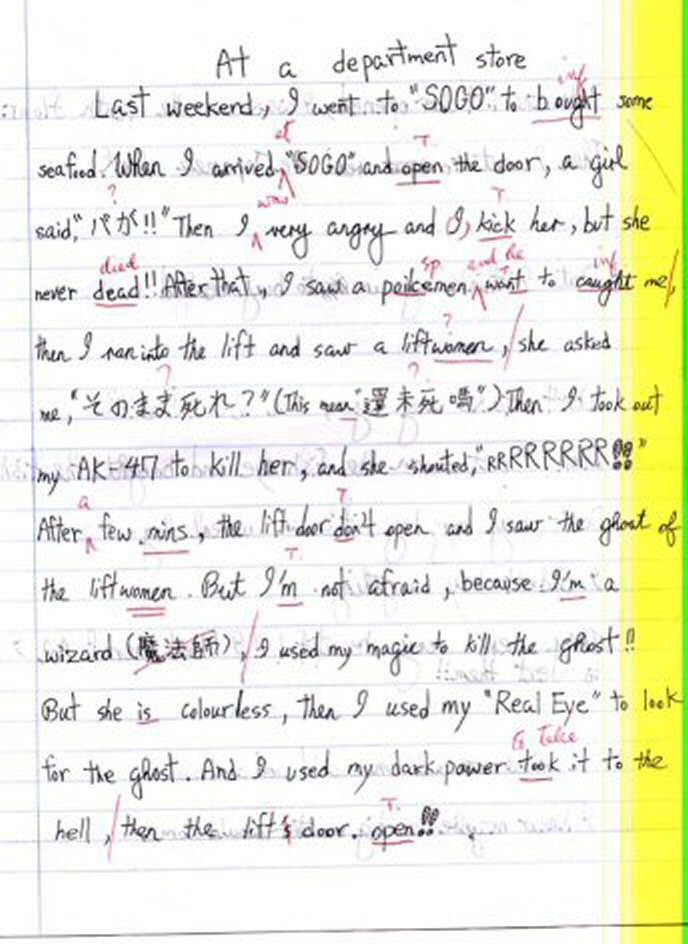 At a department store
inf
Last weekend, I went to "SOGO" to bought some
at T
seafood. When I arrived "SOGO" and open the door, a girl
? was T
said, "バが!!" Then I very angry and I, kick her, but she
died sp and he T inf
never dead!! After that, I saw a poilcemen want to caught me,
?
then I ran into the lift and saw a liftwomen, she asked
? ?
me, "そのまま死れ?" (This mean "還未死嗎") Then I took out
T
my AK-47 to kill her, and she shouted, "RRRRRRRRR!!"
a T
After few mins, the lift door don't open and I saw the ghost of
T.
the liftwomen. But I'm not afraid, because I'm a
wizard (魔法師), I used my magic to kill the ghost!!
But she is colourless, then I used my "Real Eye" to look
to take
for the ghost. And I used my dark power took it to the
T.
hell, then the lift's door. open!!.